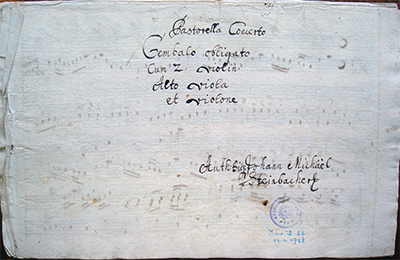 Pastorella Concerto
Cembalo obligato
Cum 2. Violin:
Alto Viola
et Violone
Johann Michäel
Steinbacher